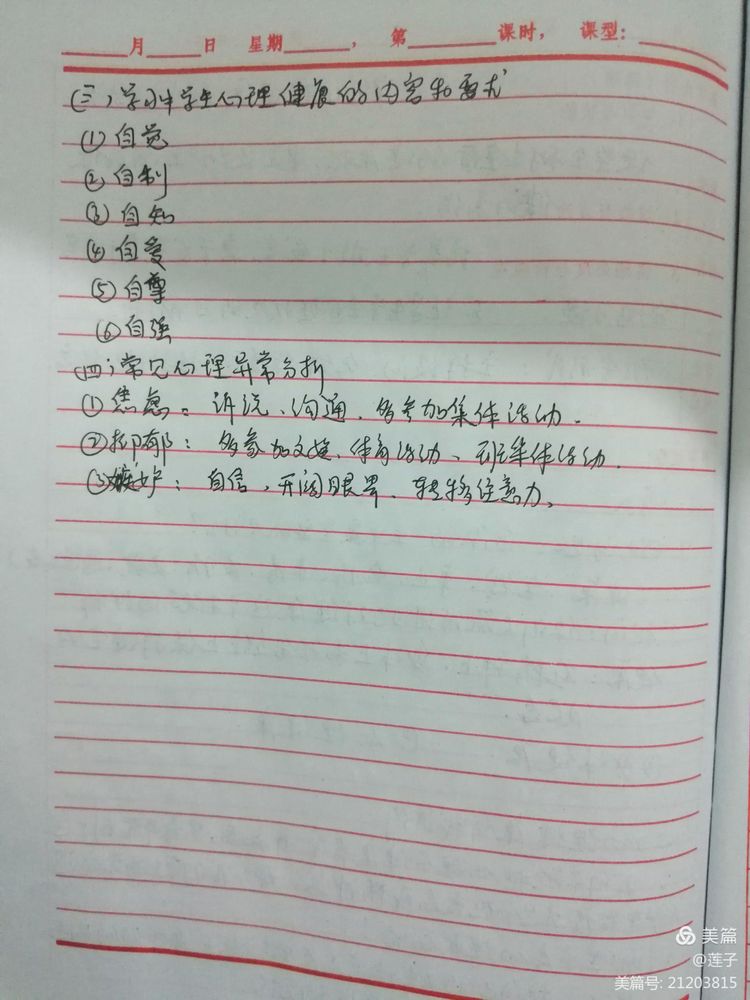 ____月____日 星期______, 第______课时, 课型:______
(三)、学习中学生心理健康的内容和要求
① 自觉
② 自制
③ 自知
④ 自爱
⑤ 自尊
⑥ 自强
(四)、常见心理异常分析
① 焦虑：诉说、沟通、多参加集体活动.
② 抑郁：多参加文娱、体育活动、班集体活动.
③ 嫉妒：自信、开阔眼界、转移注意力。
美篇
@莲子
美篇号: 21203815